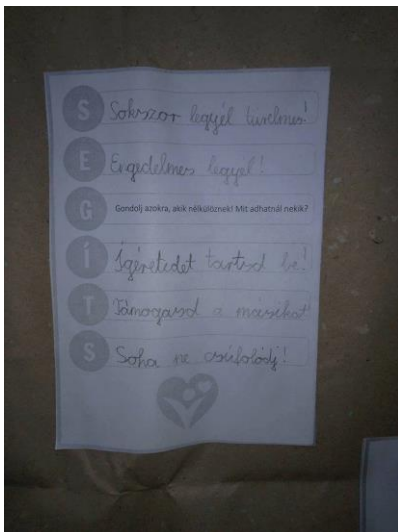 S Sokszor legyél türelmes!
E Engedelmes legyél!
G Gondolj azokra, akik nélkülöznek! Mit adhatnál nekik?
Í Ígéretedet tartsd be!
T Támogasd a másikat!
S Soha ne csúfolódj!